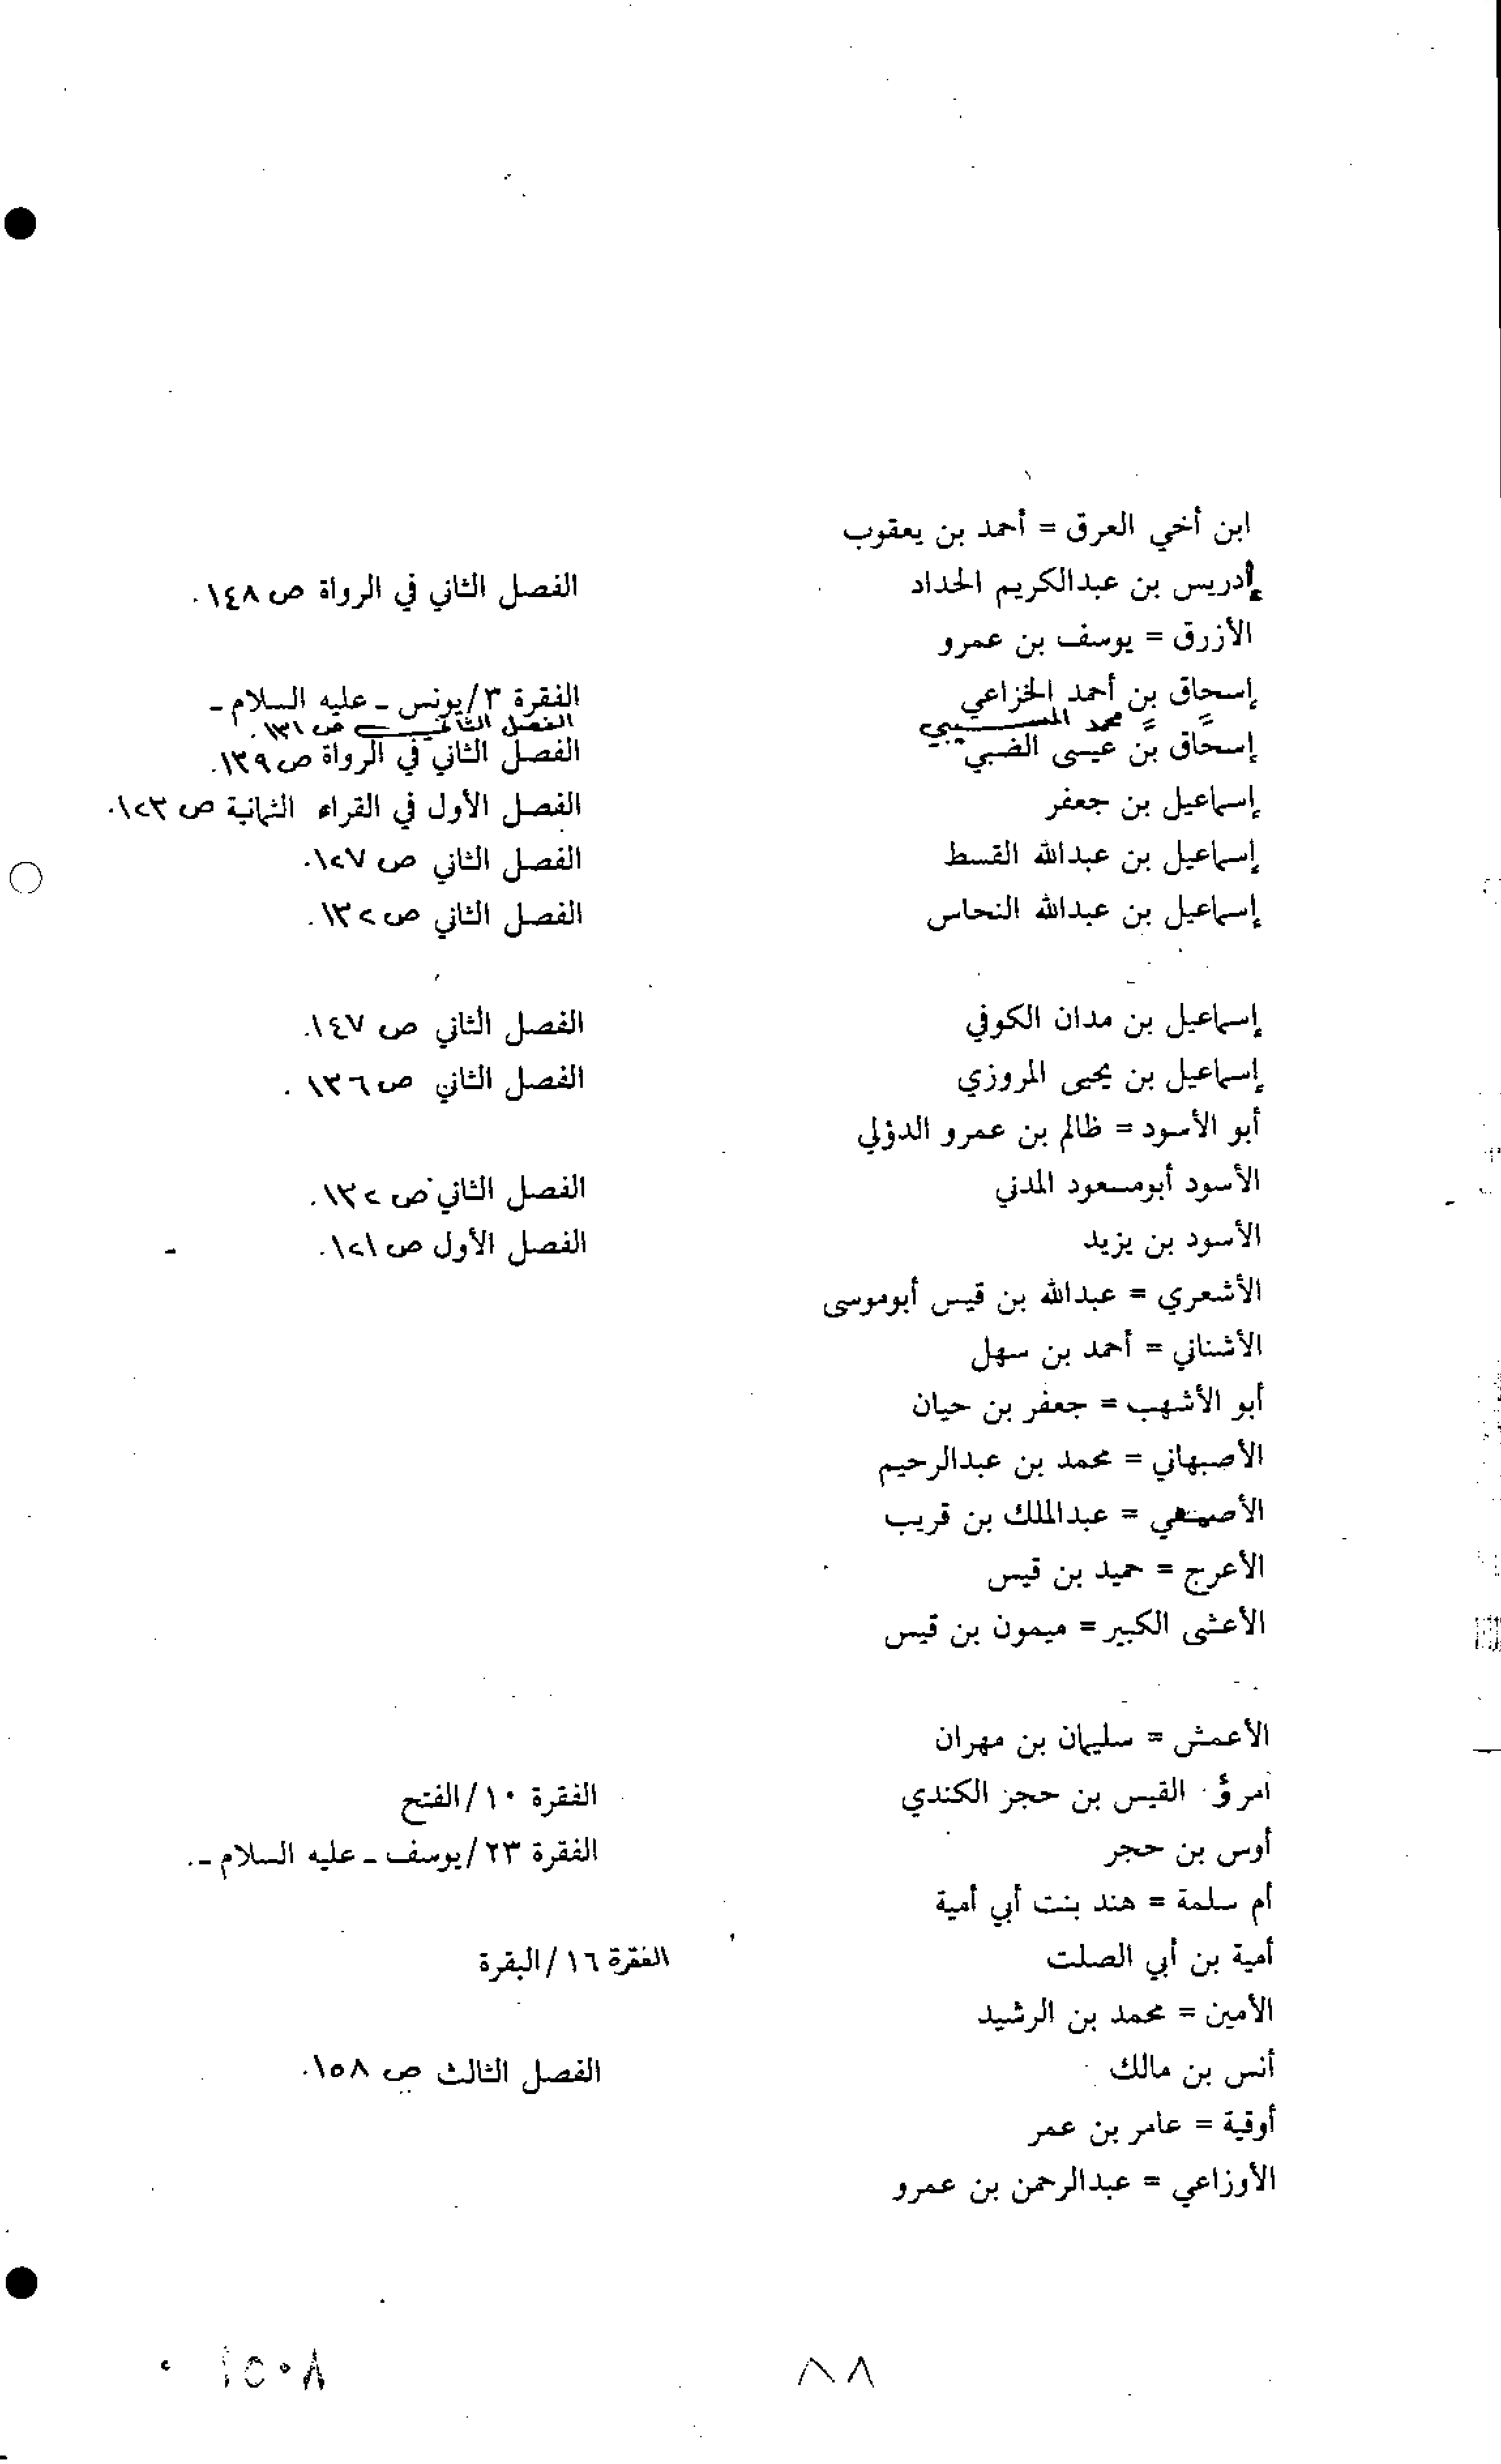 ابن أخي العرق = أحمد بن يعقوب
إدريس بن عبدالكريم الحداد الفصل الثاني في الرواة ص ١٤٨.
الأزرق = يوسف بن عمرو
إسحاق بن أحمد الخزاعي الفقرة ٣/يونس ـ عليه السلام ـ
= = محمد المسيبي الفصل الثاني ص ١٣١.
إسحاق بن عيسى الضبي الفصل الثاني في الرواة ص ١٣٩.
إسماعيل بن جعفر الفصل الأول في القراء الثمانية ص ١٢٣.
إسماعيل بن عبدالله القسط الفصل الثاني ص ١٢٧.
إسماعيل بن عبدالله النحاس الفصل الثاني ص ١٣٢.
إسماعيل بن مدان الكوفي الفصل الثاني ص ١٤٧.
إسماعيل بن يحيى المروزي الفصل الثاني ص ١٣٦.
أبو الأسود = ظالم بن عمرو الدؤلي
الأسود أبومسعود المدني الفصل الثاني ص ١٣٢.
الأسود بن يزيد الفصل الأول ص ١٢١.
الأشعري = عبدالله بن قيس أبوموسى
الأشناني = أحمد بن سهل
أبو الأشهب = جعفر بن حيان
الأصبهاني = محمد بن عبدالرحيم
الأصمعي = عبدالملك بن قريب
الأعرج = حميد بن قيس
الأعشى الكبير = ميمون بن قيس
الأعمش = سليمان بن مهران
امرؤ القيس بن حجر الكندي الفقرة ١٠/الفتح
أوس بن حجر الفقرة ٢٣/يوسف ـ عليه السلام ـ.
أم سلمة = هند بنت أبي أمية
أمية بن أبي الصلت الفقرة ١٦/البقرة
الأمين = محمد بن الرشيد
أنس بن مالك الفصل الثالث ص ١٥٨.
أوقية = عامر بن عمر
الأوزاعي = عبدالرحمن بن عمرو
٨٨